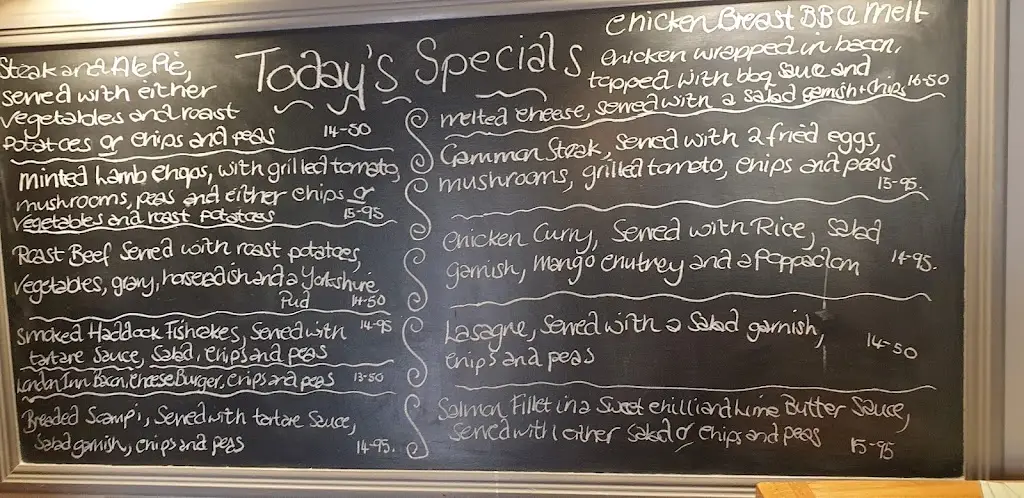 Today's Specials
Steak and Ale Pie,
served with either
vegetables and roast
potatoes or chips and peas 14-50
minted Lamb Chops, with grilled tomato,
mushrooms, peas and either chips or
vegetables and roast potatoes 15-95
Roast Beef Served with roast potatoes,
vegetables, gravy, horseradish and a Yorkshire
Pud 14-50
Smoked Haddock Fishcakes, Served with 14-95
tartare Sauce, Salad, chips and peas
London Inn Bacon, Cheese Burger, chips and peas 13-50
Breaded Scampi, Served with tartare Sauce,
Salad garnish, chips and peas 14-95.
Chicken Breast BBQ Melt
Chicken wrapped in bacon,
topped with bbq Sauce and
melted cheese, served with a Salad garnish + chips 16-50
Gammon Steak, Served with 2 fried eggs,
mushrooms, grilled tomato, chips and peas
15-95.
Chicken Curry, Served with Rice, Salad
garnish, mango chutney and a Poppadom 14-95.
Lasagne, Served with a Salad garnish,
chips and peas 14-50
Salmon Fillet in a Sweet chilli and Lime Butter Sauce,
Served with either Salad or chips and peas 15-95